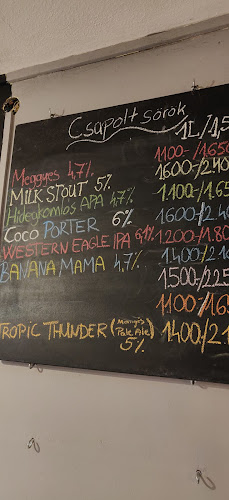 Csapolt sörök
1L/1,5
Meggyes 4,7% 1100.-/1.650
MILK STOUT 5% 1600.-/2.40
Hidegkomlós APA 4,7% 1.100.-/1.65
COCO PORTER 6% 1.600.-/2.40
WESTERN EAGLE IPA 6,1% 1.200.-/1.80
BANANA MAMA 4,7% 1.400.-/2.10
1.500.-/225
1100.-/1.65
TROPIC THUNDER (Mangós Pale Ale) 5% 1400.-/2.1